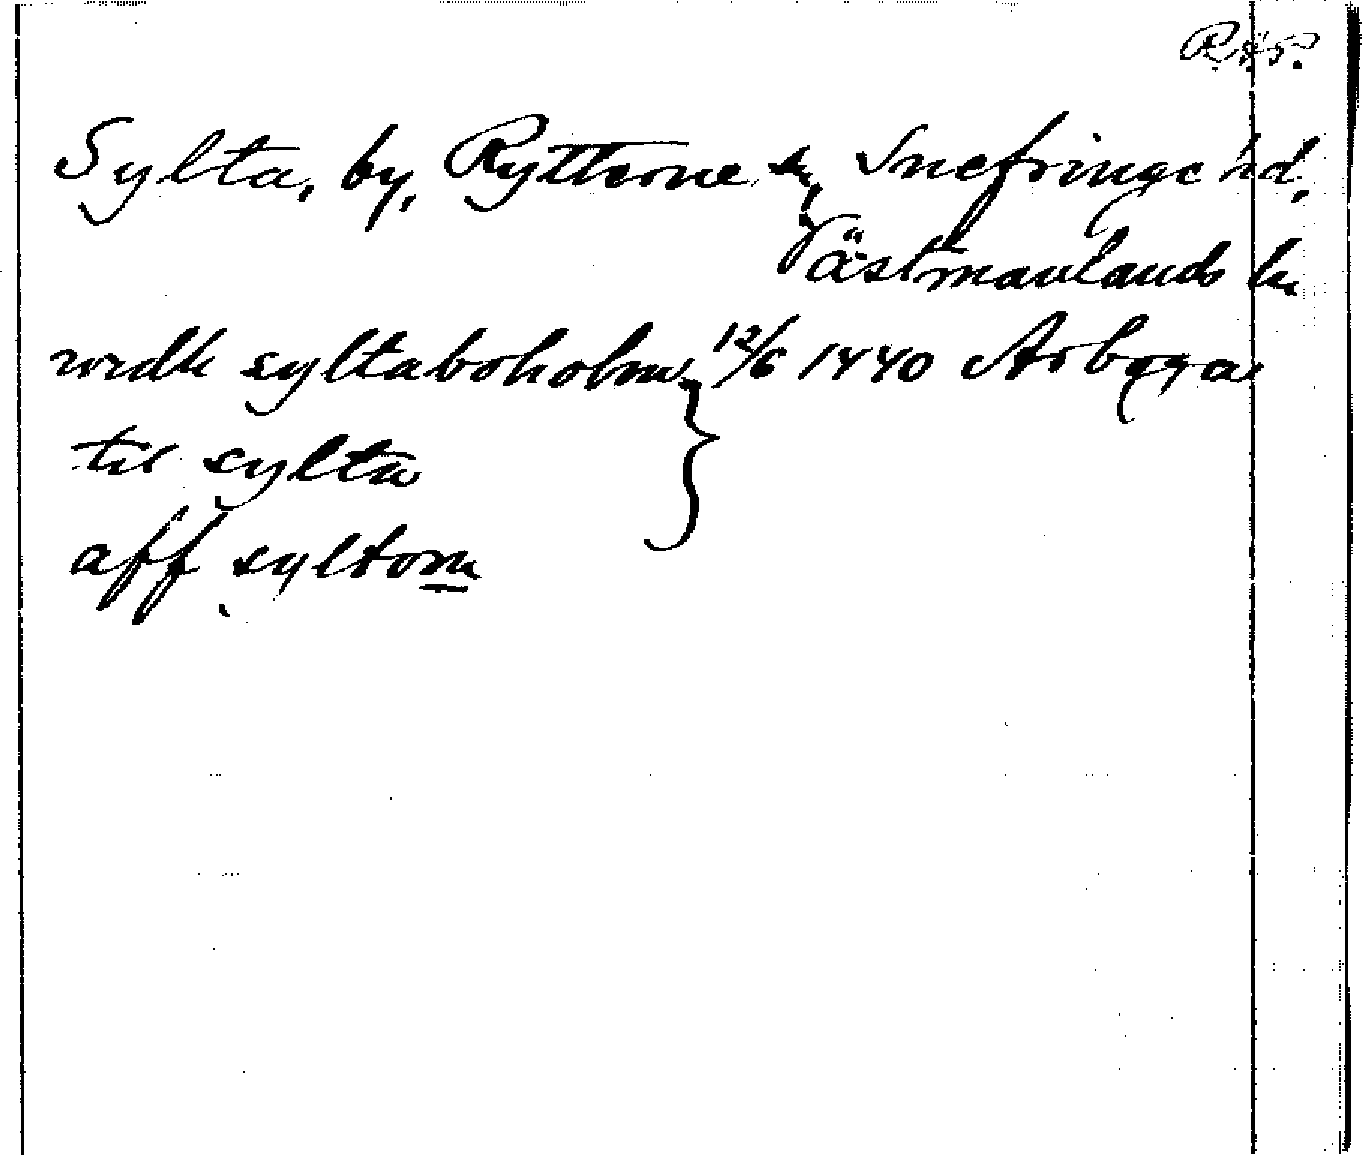 Räp.
Sylta, by, Rytterne sn, Snefringe hd,
Västmanlands ln
widh syltaboholm 12/6 1440 Arboga
til sylta
aff syltom